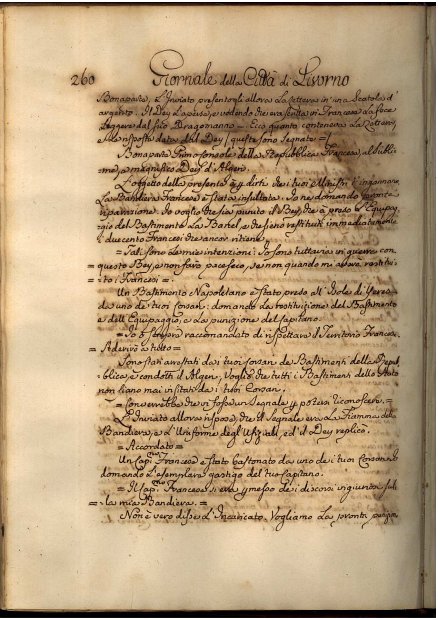 260 Giornale della Città di Livorno
Bonaparte. L'Inviato presentogli allora La lettera in una Scatola d'
argento. Il Dey La prese, e vedendo che era scritta in Francese La fece
Leggere dal suo Dragomanno = Ecco quanto conteneva La Lettera,
e La risposta data dal Dey (queste sono segnate =)
Bonaparte Primo Console della Repubblica Francese, al subli-
me, e magnifico Dey d'Algeri.
L'oggetto della presente è p. dirti che i tuoi Ministri t'ingannano
La Bandiera Francese è stata insultata. Io ne domando pronta
riparazione. Io voglio che sia punito il Bey, che à preso L'Equipag-
gio del Bastimento La Bartel, e che sieno restituiti immediatamente
i duecento Francesi che ancor ritiene.
= Tali sono Le mie intenzioni: Io sono tuttavia in guerra con
= questo Bey, e non farò pace seco, se non quando mi abbia restitui-
= to i Francesi =
Un Bastimento Napoletano è stato preso all'Isole di Yeres
da uno de' tuoi Corsari; domando la restituzione del Bastimento
e dell'Equipaggio, e La punizione del Capitano.
= Io ò sempre raccomandato di rispettare il Territorio Francese.
= Si darò a tutto =
Sono stati arrestati dai tuoi Corsari de' Bastimenti della Repub-
blica, e condotti in Algeri. Voglio che tutti i Bastimenti dello Stato
non siano mai visitati dai tuoi Corsari.
= Converrebbe che vi fosse un Segnale p. potersi riconoscere =
L'Inviato allora rispose, che il Segnale era La Fiamma, della
Bandiera, e L'Uniforme degli Uffiziali, ed il Dey replicò.
= Accordato =
Un Cap.no Francese è stato bastonato da uno de i tuoi Corsari
domando L'esemplare gastigo del tuo Capitano.
= Il Cap.no Francese si era permesso dei discorsi ingiuriosi sul-
= la mia Bandiera =
Non è vero disse L'Incaricato. Vogliamo La pronta